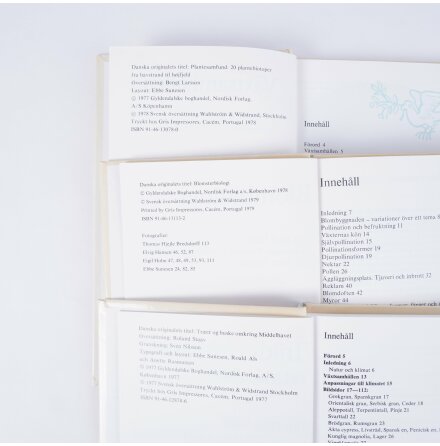 Danska originalets titel: Plantesamfund. 20 plantebiotoper
fra havstrand til højfjeld
Svensk översättning: Bengt Larsson
Layout: Ebbe Sunesen
© 1977 Gyldendalske boghandel, Nordisk Forlag,
A/S Köpenhamn
© 1978 Svensk översättning Wahlström & Widstrand, Stockholm
Tryckt hos Gris Impressores, Cacém, Portugal 1978
ISBN 91-46-13078-0
Innehåll
Förord 4
Växtsamhällen 5
Danska originalets titel: Blomsterbiologi
© Gyldendalske Boghandel, Nordisk Forlag a/s. København 1978
© Svensk översättning Wahlström & Widstrand 1979
Printed by Gris Impressores, Cacém, Portugal 1979
Fotografier:
Innehåll
Inledning 7
Blombyggnaden – variationer över ett tema 8
Pollination och befruktning 11
Växternas kön 14
Självpollination 15
Pollinationsformer 19
Djurpollination 19
Nektar 22
Pollen 26
Äggläggningsplats, Tjuveri och inbrott 32
Reklam 40
Blomdoften 42
Myror 44
Danska originalets titel: Træer og buske omkring Middelhavet
Översättning: Roland Staav
Granskning: Sven Nilsson
Typografi och layout: Ebbe Sunesen, Roald Als
och Anette Rasmussen
© 1977 Gyldendalske Boghandel, Nordisk Forlag, A/S,
København 1977
© 1977 Svensk översättning Wahlström & Widstrand Stockholm
Tryckt hos Gris Impressores, Cacém, Portugal 1977
Innehåll
Förord 5
Inledning 6
Natur och klimat 6
Växtsamhällen 13
Anpassningar till klimatet 15
Bildsidor 17—112:
Grekgran, Spanskgran 17
Orientalisk gran, Serbisk gran, Ceder 18
Aleppotall, Terpentintall 21
Pinje 21
Svarttall 22